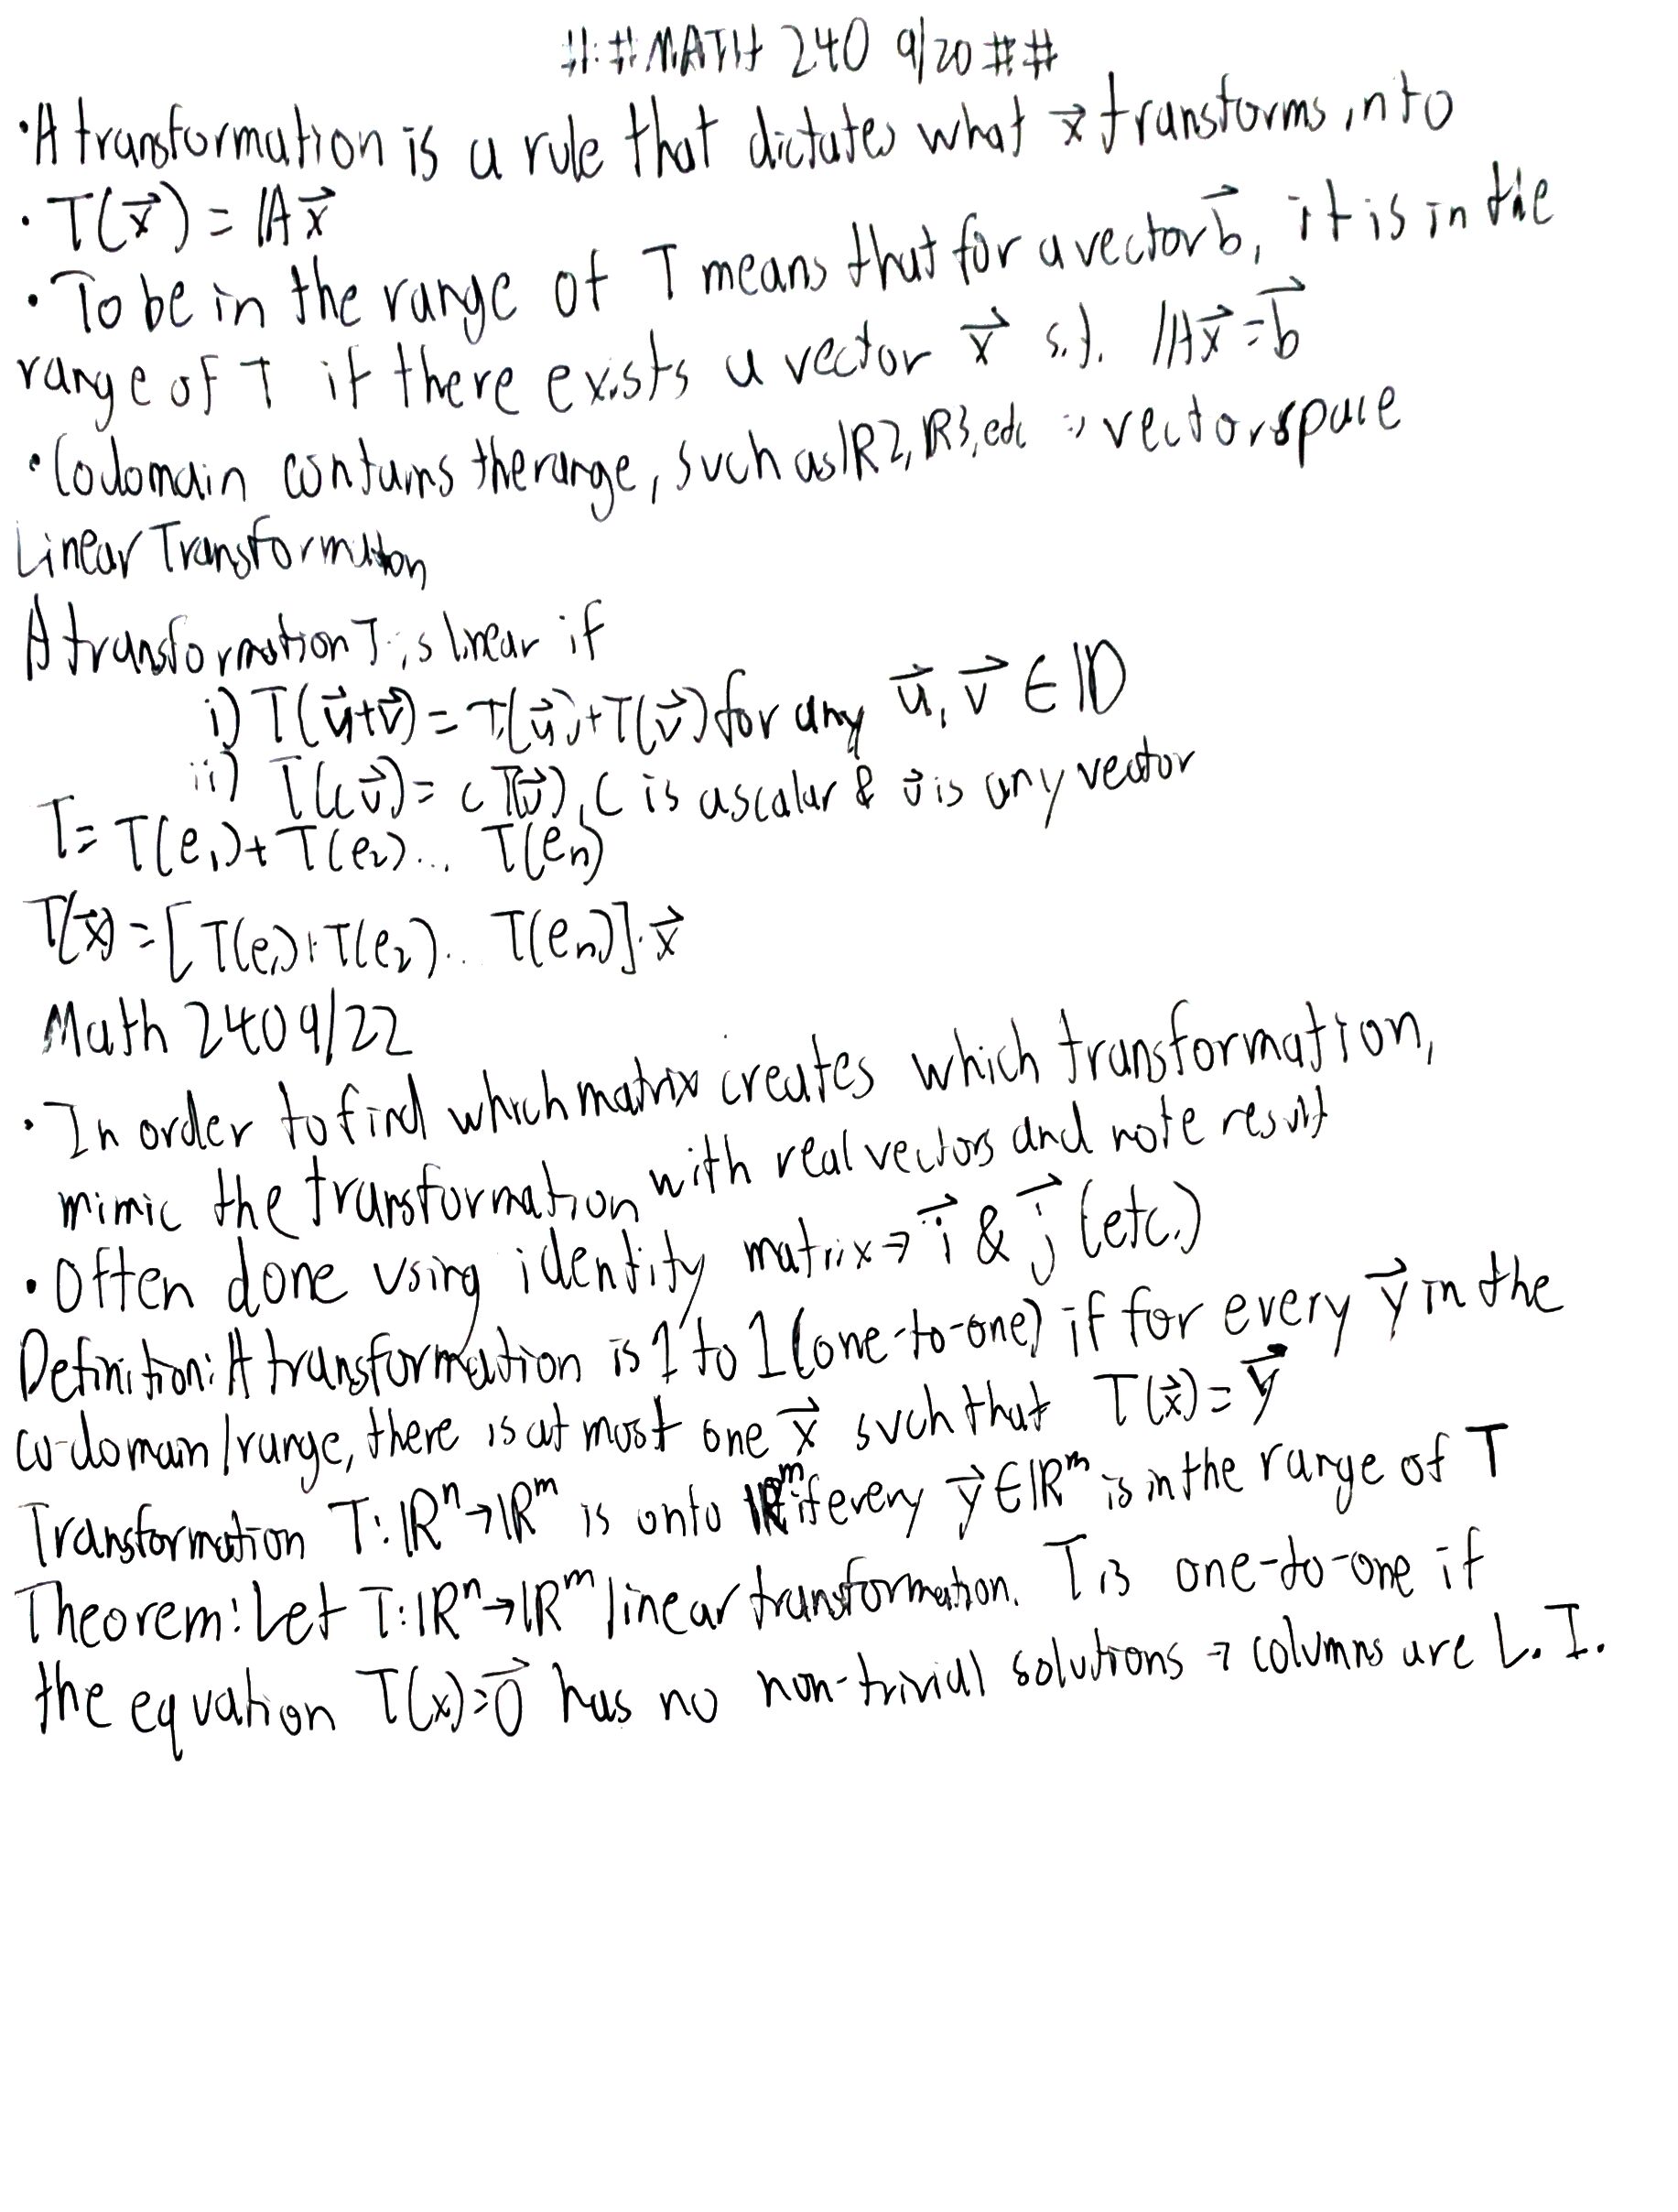 ##MATH 240 9/20##
• A transformation is a rule that dictates what x⃗ transforms into
• T(x⃗) = Ax⃗
• To be in the range of T means that for a vector b⃗, it is in the
range of T if there exists a vector x⃗ s.t. Ax⃗ = b⃗
• Codomain contains the range, such as ℝ2, ℝ3, etc → vector space
Linear Transformation
A transformation T is linear if
i) T(u⃗+v⃗) = T(u⃗)+T(v⃗) for any u⃗, v⃗ ∈ 𝔻
ii) T(cv⃗) = cT(v⃗), c is a scalar & v⃗ is any vector
T= T(e₁)+T(e₂)... T(eₙ)
T(x⃗) = [T(e₁)+T(e₂).. T(eₙ)]·x⃗
Math 240 9/22
• In order to find which matrix creates which transformation,
mimic the transformation with real vectors and note result
• Often done using identity matrix → i⃗ & j⃗ (etc.)
Definition: A transformation is 1 to 1 (one-to-one) if for every y⃗ in the
co-domain/range, there is at most one x⃗ such that T(x⃗) = y⃗
Transformation T: ℝⁿ→ℝᵐ is onto ℝᵐ if every y⃗ ∈ ℝᵐ is in the range of T
Theorem: Let T: ℝⁿ→ℝᵐ linear transformation. T is one-to-one if
the equation T(x)=0⃗ has no non-trivial solutions → columns are L.I.